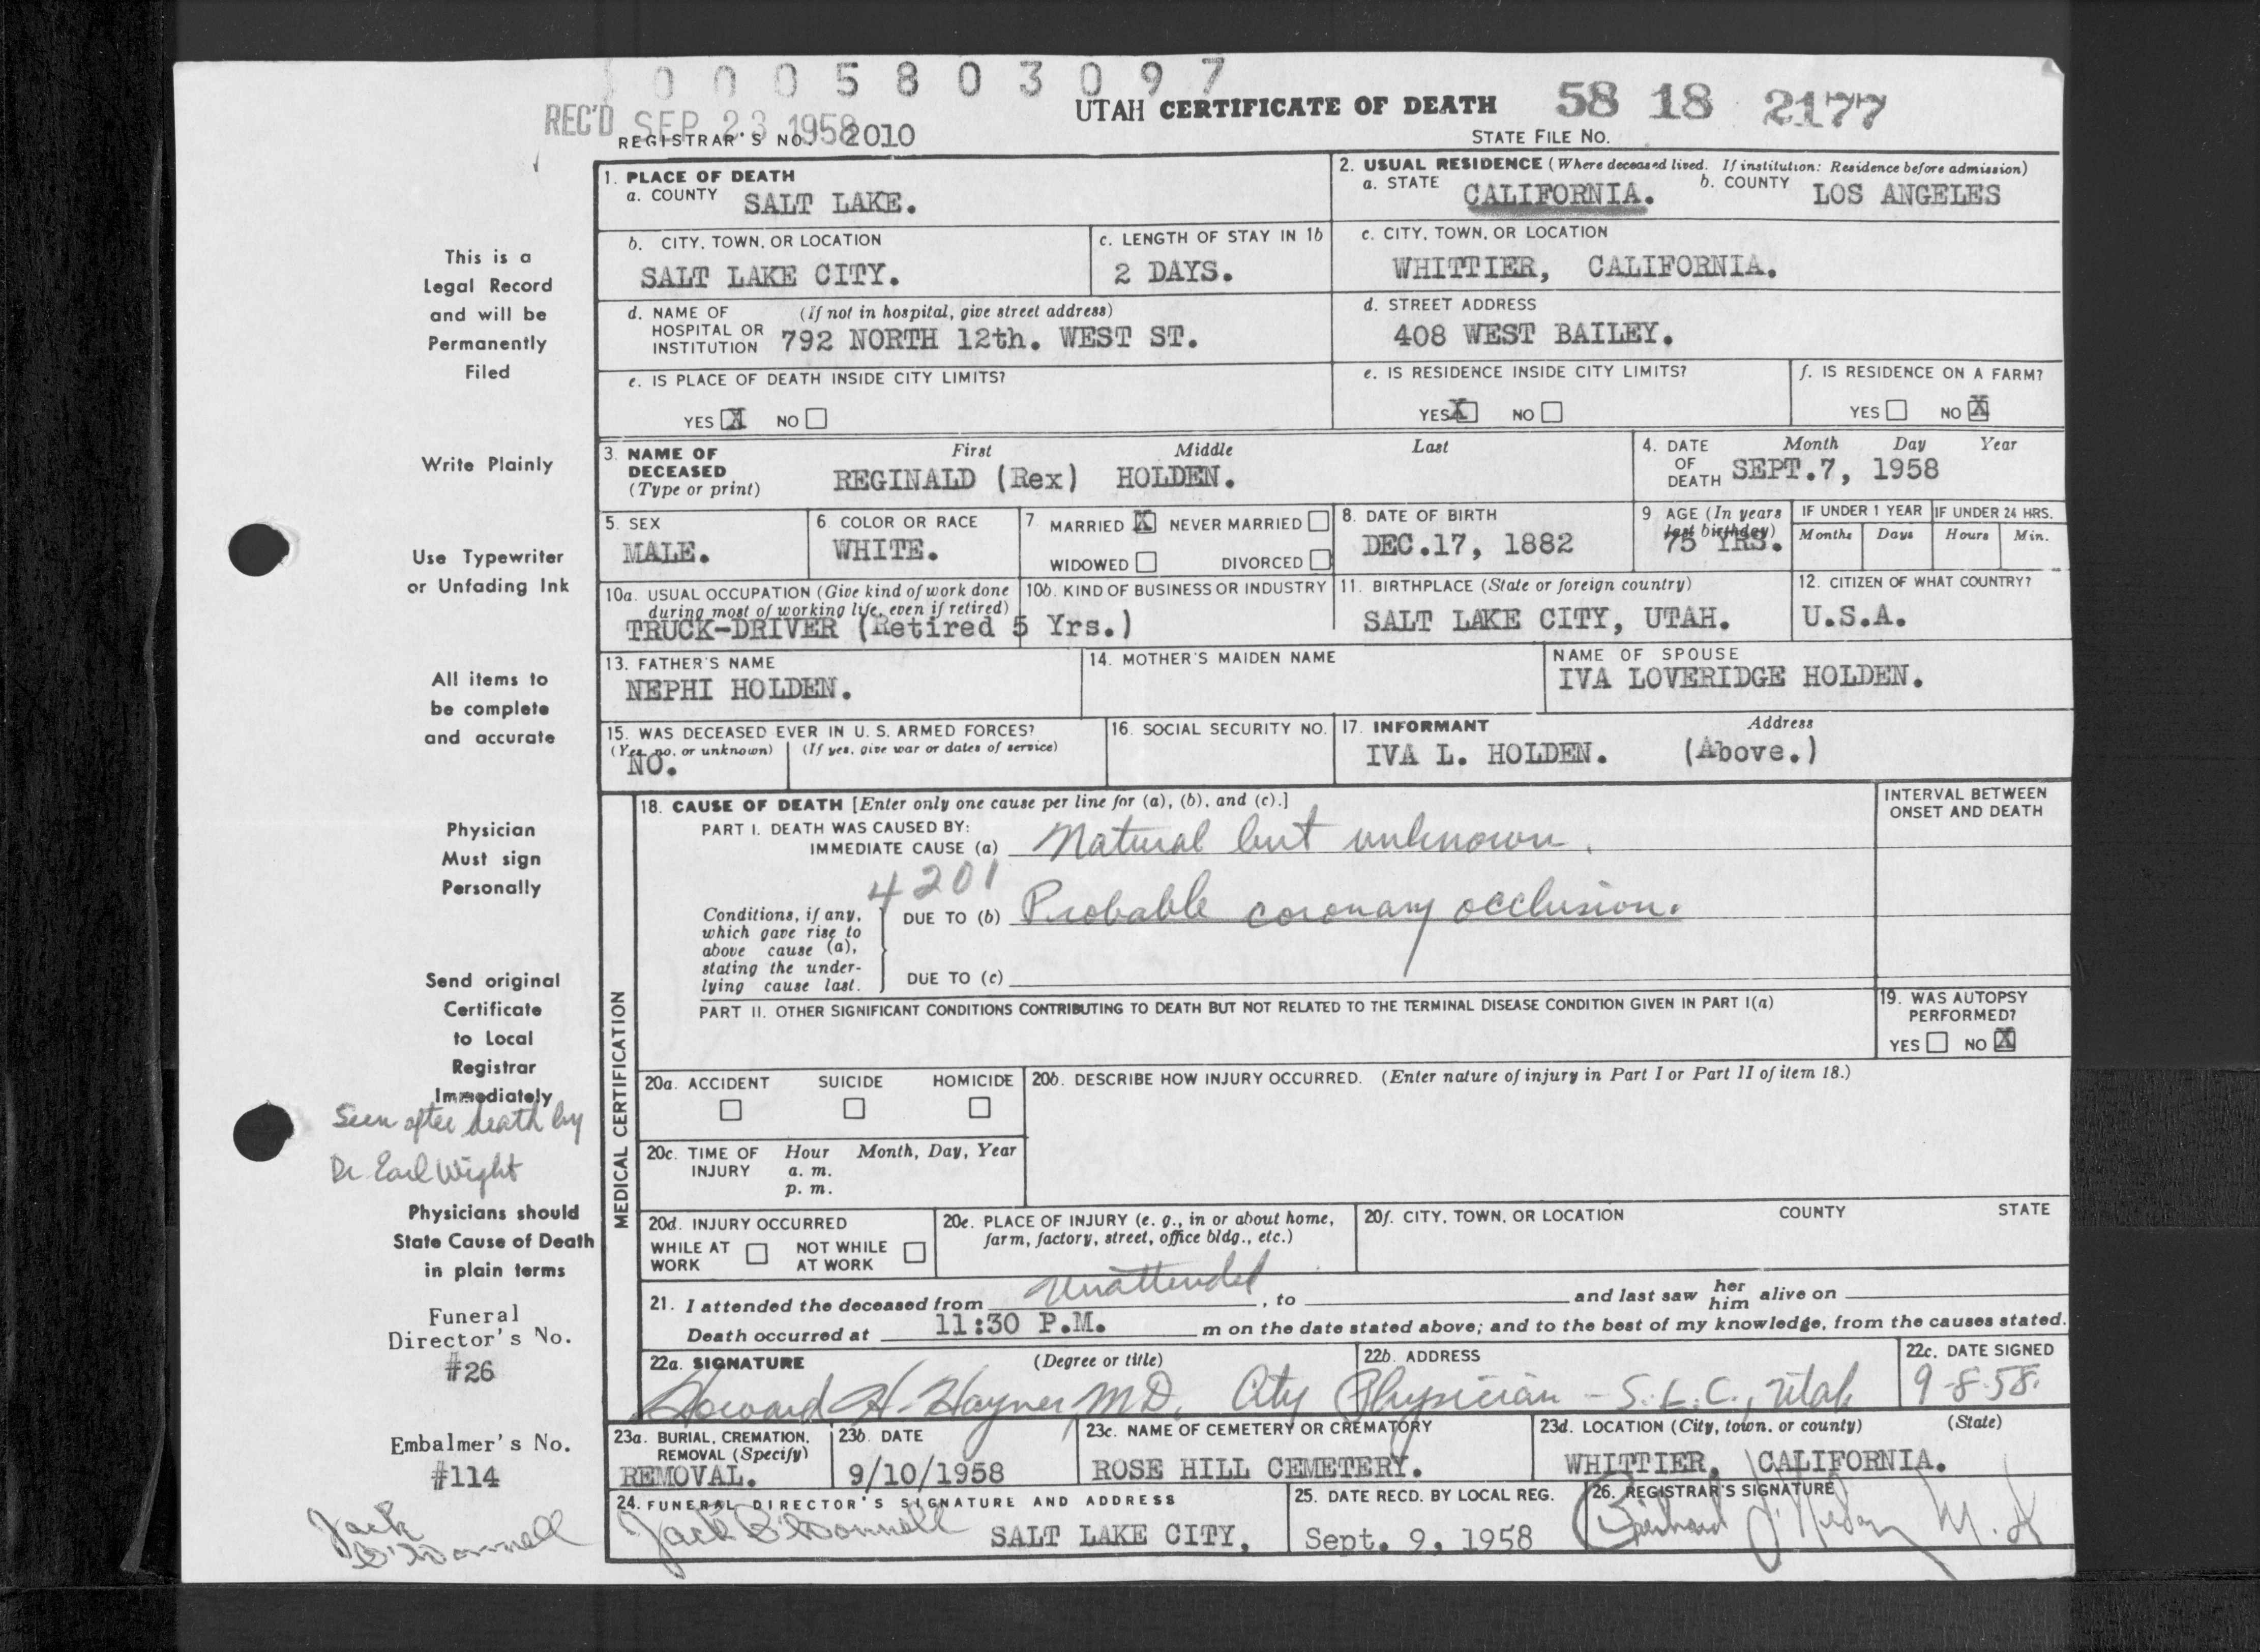 0005803097
REC'D SEP 23 1958
UTAH CERTIFICATE OF DEATH 58 18 2177
REGISTRAR'S NO. 2010
STATE FILE NO.
This is a
Legal Record
and will be
Permanently
Filed
Write Plainly
Use Typewriter
or Unfading Ink
All items to
be complete
and accurate
Physician
Must sign
Personally
Send original
Certificate
to Local
Registrar
Immediately
Seen after death by
Dr Earl Wight
Physicians should
State Cause of Death
in plain terms
Funeral
Director's No.
#26
Embalmer's No.
#114
Jack
O'Donnell
1. PLACE OF DEATH
a. COUNTY SALT LAKE.
2. USUAL RESIDENCE (Where deceased lived. If institution: Residence before admission)
a. STATE CALIFORNIA. b. COUNTY LOS ANGELES
b. CITY, TOWN, OR LOCATION
SALT LAKE CITY.
c. LENGTH OF STAY IN 1b
2 DAYS.
c. CITY, TOWN, OR LOCATION
WHITTIER, CALIFORNIA.
d. NAME OF (If not in hospital, give street address)
HOSPITAL OR
INSTITUTION 792 NORTH 12th. WEST ST.
d. STREET ADDRESS
408 WEST BAILEY.
e. IS PLACE OF DEATH INSIDE CITY LIMITS?
YES X NO
e. IS RESIDENCE INSIDE CITY LIMITS?
YES X NO
f. IS RESIDENCE ON A FARM?
YES NO X
3. NAME OF DECEASED (Type or print)
First Middle Last
REGINALD (Rex) HOLDEN.
4. DATE OF DEATH Month Day Year
SEPT.7, 1958
5. SEX
MALE.
6. COLOR OR RACE
WHITE.
7 MARRIED X NEVER MARRIED
WIDOWED DIVORCED
8. DATE OF BIRTH
DEC.17, 1882
9. AGE (In years last birthday)
75 YRS.
IF UNDER 1 YEAR IF UNDER 24 HRS.
Months Days Hours Min.
10a. USUAL OCCUPATION (Give kind of work done
during most of working life, even if retired)
10b. KIND OF BUSINESS OR INDUSTRY
TRUCK-DRIVER (Retired 5 Yrs.)
11. BIRTHPLACE (State or foreign country)
SALT LAKE CITY, UTAH.
12. CITIZEN OF WHAT COUNTRY?
U.S.A.
13. FATHER'S NAME
NEPHI HOLDEN.
14. MOTHER'S MAIDEN NAME
NAME OF SPOUSE
IVA LOVERIDGE HOLDEN.
15. WAS DECEASED EVER IN U. S. ARMED FORCES?
(Yes, no, or unknown) (If yes, give war or dates of service)
NO.
16. SOCIAL SECURITY NO.
17. INFORMANT Address
IVA L. HOLDEN. (Above.)
MEDICAL CERTIFICATION
18. CAUSE OF DEATH [Enter only one cause per line for (a), (b), and (c).]
INTERVAL BETWEEN
ONSET AND DEATH
PART I. DEATH WAS CAUSED BY:
IMMEDIATE CAUSE (a) Natural but unknown.
4201
Conditions, if any,
which gave rise to
above cause (a),
stating the under-
lying cause last.
DUE TO (b) Probable coronary occlusion.
DUE TO (c)
PART II. OTHER SIGNIFICANT CONDITIONS CONTRIBUTING TO DEATH BUT NOT RELATED TO THE TERMINAL DISEASE CONDITION GIVEN IN PART I(a)
19. WAS AUTOPSY
PERFORMED?
YES NO X
20a. ACCIDENT SUICIDE HOMICIDE
20b. DESCRIBE HOW INJURY OCCURRED. (Enter nature of injury in Part I or Part II of item 18.)
20c. TIME OF INJURY Hour Month, Day, Year
a. m.
p. m.
20d. INJURY OCCURRED
WHILE AT WORK NOT WHILE AT WORK
20e. PLACE OF INJURY (e. g., in or about home,
farm, factory, street, office bldg., etc.)
20f. CITY, TOWN, OR LOCATION COUNTY STATE
21. I attended the deceased from Unattended, to and last saw her him alive on
Death occurred at 11:30 P.M. m on the date stated above; and to the best of my knowledge, from the causes stated.
22a. SIGNATURE (Degree or title) 22b. ADDRESS 22c. DATE SIGNED
Howard H. Hayner M.D. City Physician - S.L.C., Utah 9-8-58.
23a. BURIAL, CREMATION,
REMOVAL (Specify)
REMOVAL.
23b. DATE
9/10/1958
23c. NAME OF CEMETERY OR CREMATORY
ROSE HILL CEMETERY.
23d. LOCATION (City, town, or county) (State)
WHITTIER, CALIFORNIA.
24. FUNERAL DIRECTOR'S SIGNATURE AND ADDRESS
Jack O'Donnell SALT LAKE CITY,
25. DATE RECD. BY LOCAL REG.
Sept. 9, 1958
26. REGISTRAR'S SIGNATURE